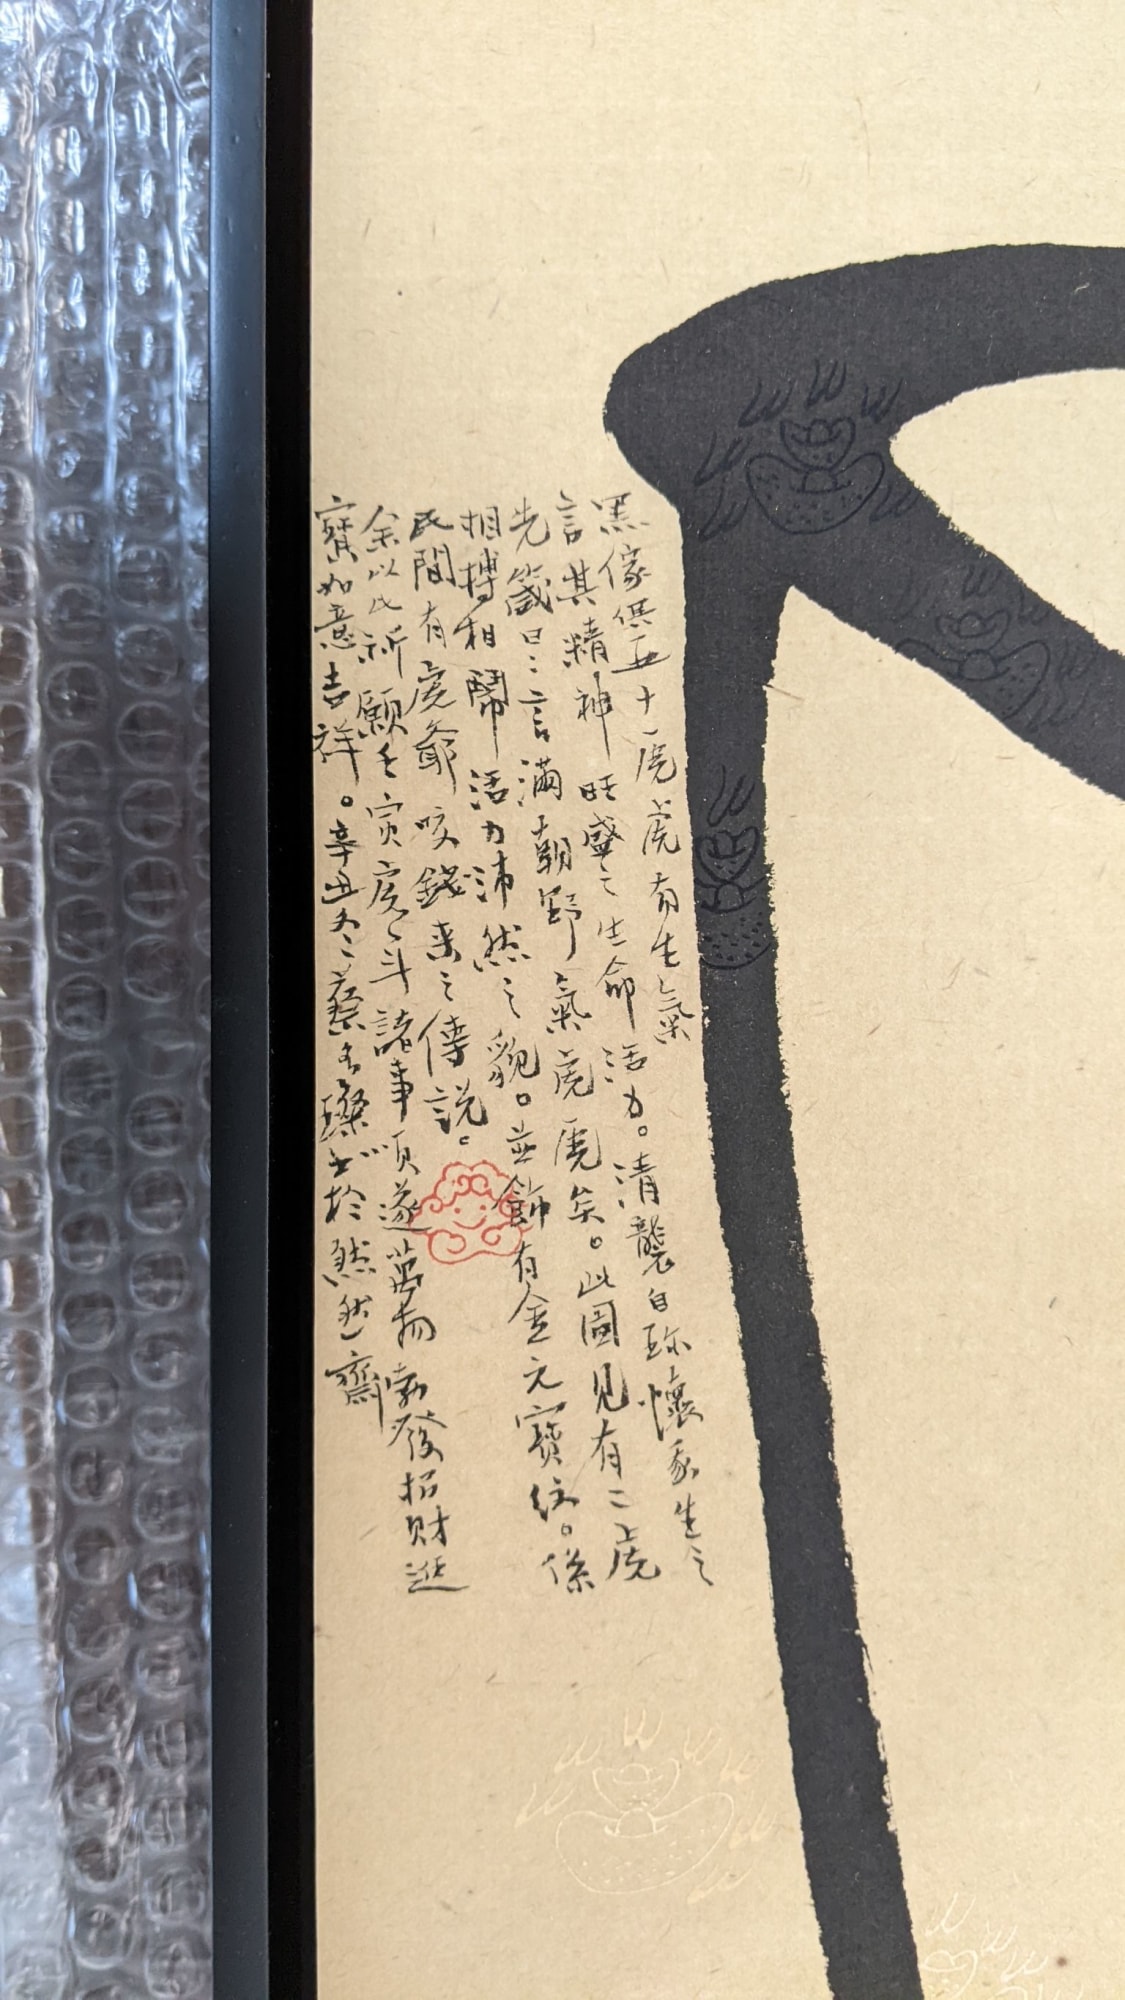 黑傢俱五十一虎虎有生氣
言其精神旺盛之生命活力。清龔自珍懷我生之
先箴曰：言滿朝野氣虎虎矣。此圖見有二虎
相搏相鬧活力沛然之貌。並飾有金元寶紋。係
民間有虎爺咬錢來之傳說。
余以此祈願壬寅虎年諸事順遂萬物勃發招財進
寶如意吉祥。辛丑冬蔡於然然齋